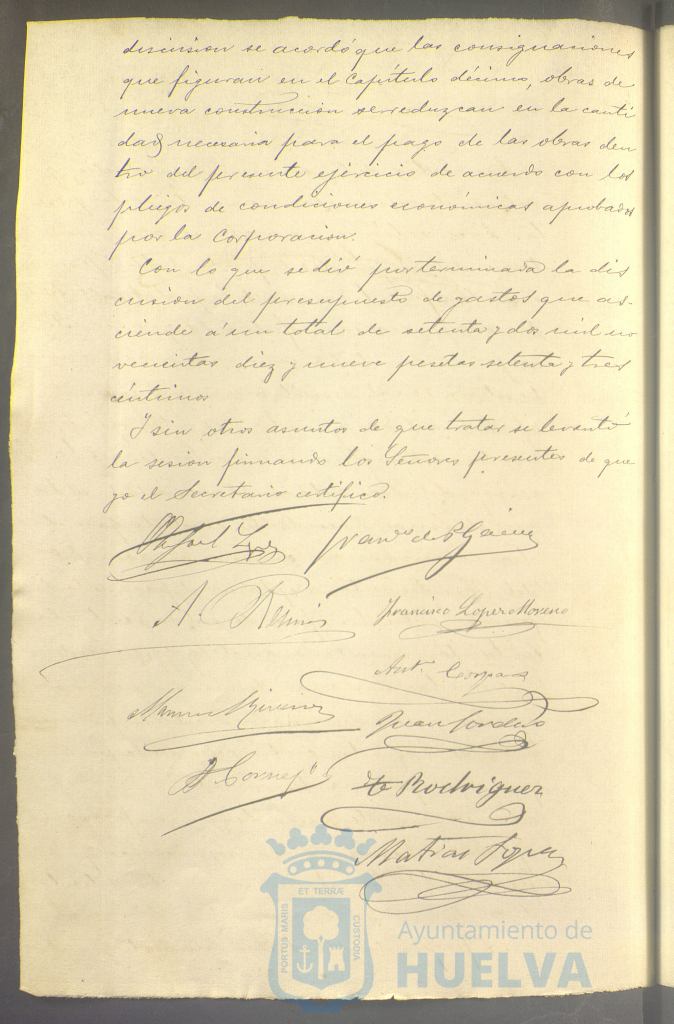 discusion se acordó que las consignaciones
que figuran en el Capítulo décimo, obras de
nueva construccion se reduzcan en la canti
dad necesaria para el pago de las obras den
tro del presente ejercicio de acuerdo con los
pliegos de condiciones económicas aprobados
por la Corporacion.
Con lo que se dió por terminada la dis
cusion del presupuesto de gastos que as-
ciende á un total de setenta y dos mil no
vecientas diez y nueve pesetas setenta y tres
céntimos
Y sin otros asuntos de que tratar se levantó
la sesion firmando los Señores presentes de que
yo el Secretario certifico.
Franco de P
A.
Francisco Lopez Moreno
Antº
Manuel
Juan
Cornejo
Rodriguez
Matias Lopez
ET TERRÆ
PORTUS MARIS
CUSTODIA
Ayuntamiento de
HUELVA